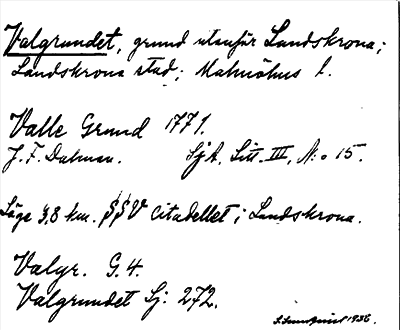 Valgrundet, grund utanför Landskrona;
Landskrona stad; Malmöhus l.
Valle Grund 1771.
J. F. Dalman. SjA, Litt. III, N:o 15.
Läge 3,8 km. SSV citadellet i Landskrona.
Valgr. G. 4.
Valgrundet Sj: 272.
1936.